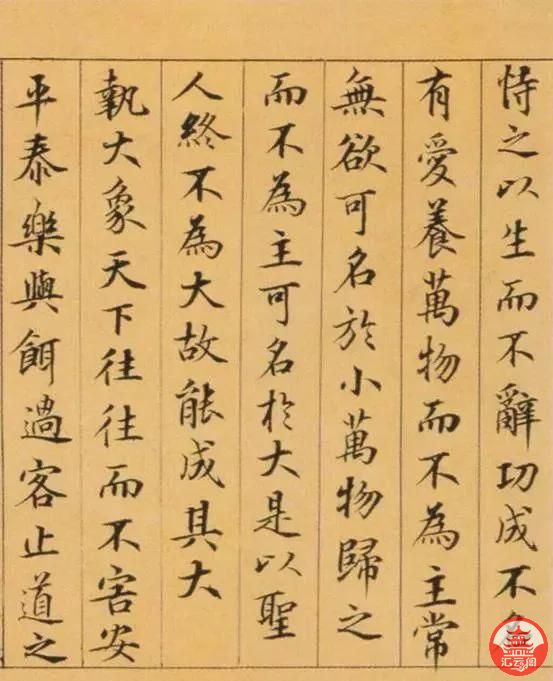 恃之以生而不辭切成不
有愛養萬物而不為主常
無欲可名於小萬物歸之
而不為主可名於大是以聖
人終不為大故能成其大
執大象天下往往而不害安
平泰樂與餌過客止道之
汇云阁